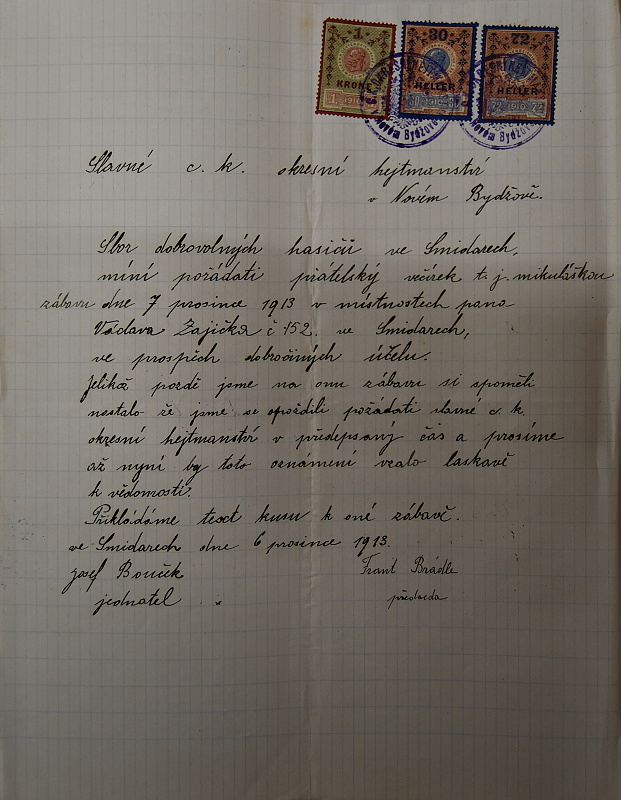 1 30 72
KRONE HELLER HELLER
1 1910 30 1910 30 72 1910 72
Novém Bydžově
Slavné c. k. okresní hejtmanství
v Novém Bydžově.
Sbor dobrovolných hasičů ve Smidarech,
míní pořádati přátelský večírek t. j. mikuláškou
zábavu dne 7 prosince 1913 v místnostech pana
Václava Zajíčka č 152. ve Smidarech,
ve prospěch dobročiných účelu.
Jelikož pozdě jsme na onu zábavu si spoměli
nastalo že jsme se opozdili požádati slavné c. k.
okresní hejtmanství v předepsaný čás a prosíme
až nyní by toto oznámení vzalo laskavě
k vědomosti.
Přikládáme text kusu k oné zábavě.
ve Smidarech dne 6 prosince 1913.
Josef Bouček Frant Brádle
jednatel předseda